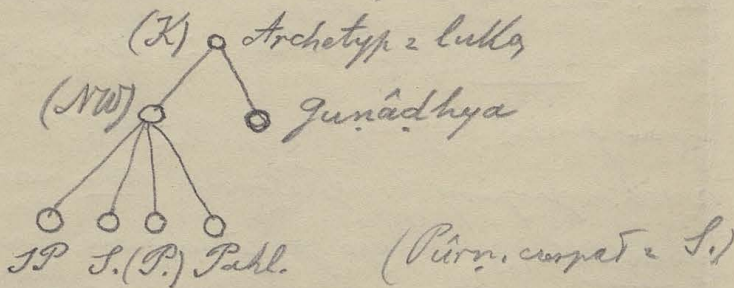 (K) Archetyp z luką
(NW) Guṇâḍhya
SP S. (P.) Pahl. (Pûrṇ. czerpał z S.)